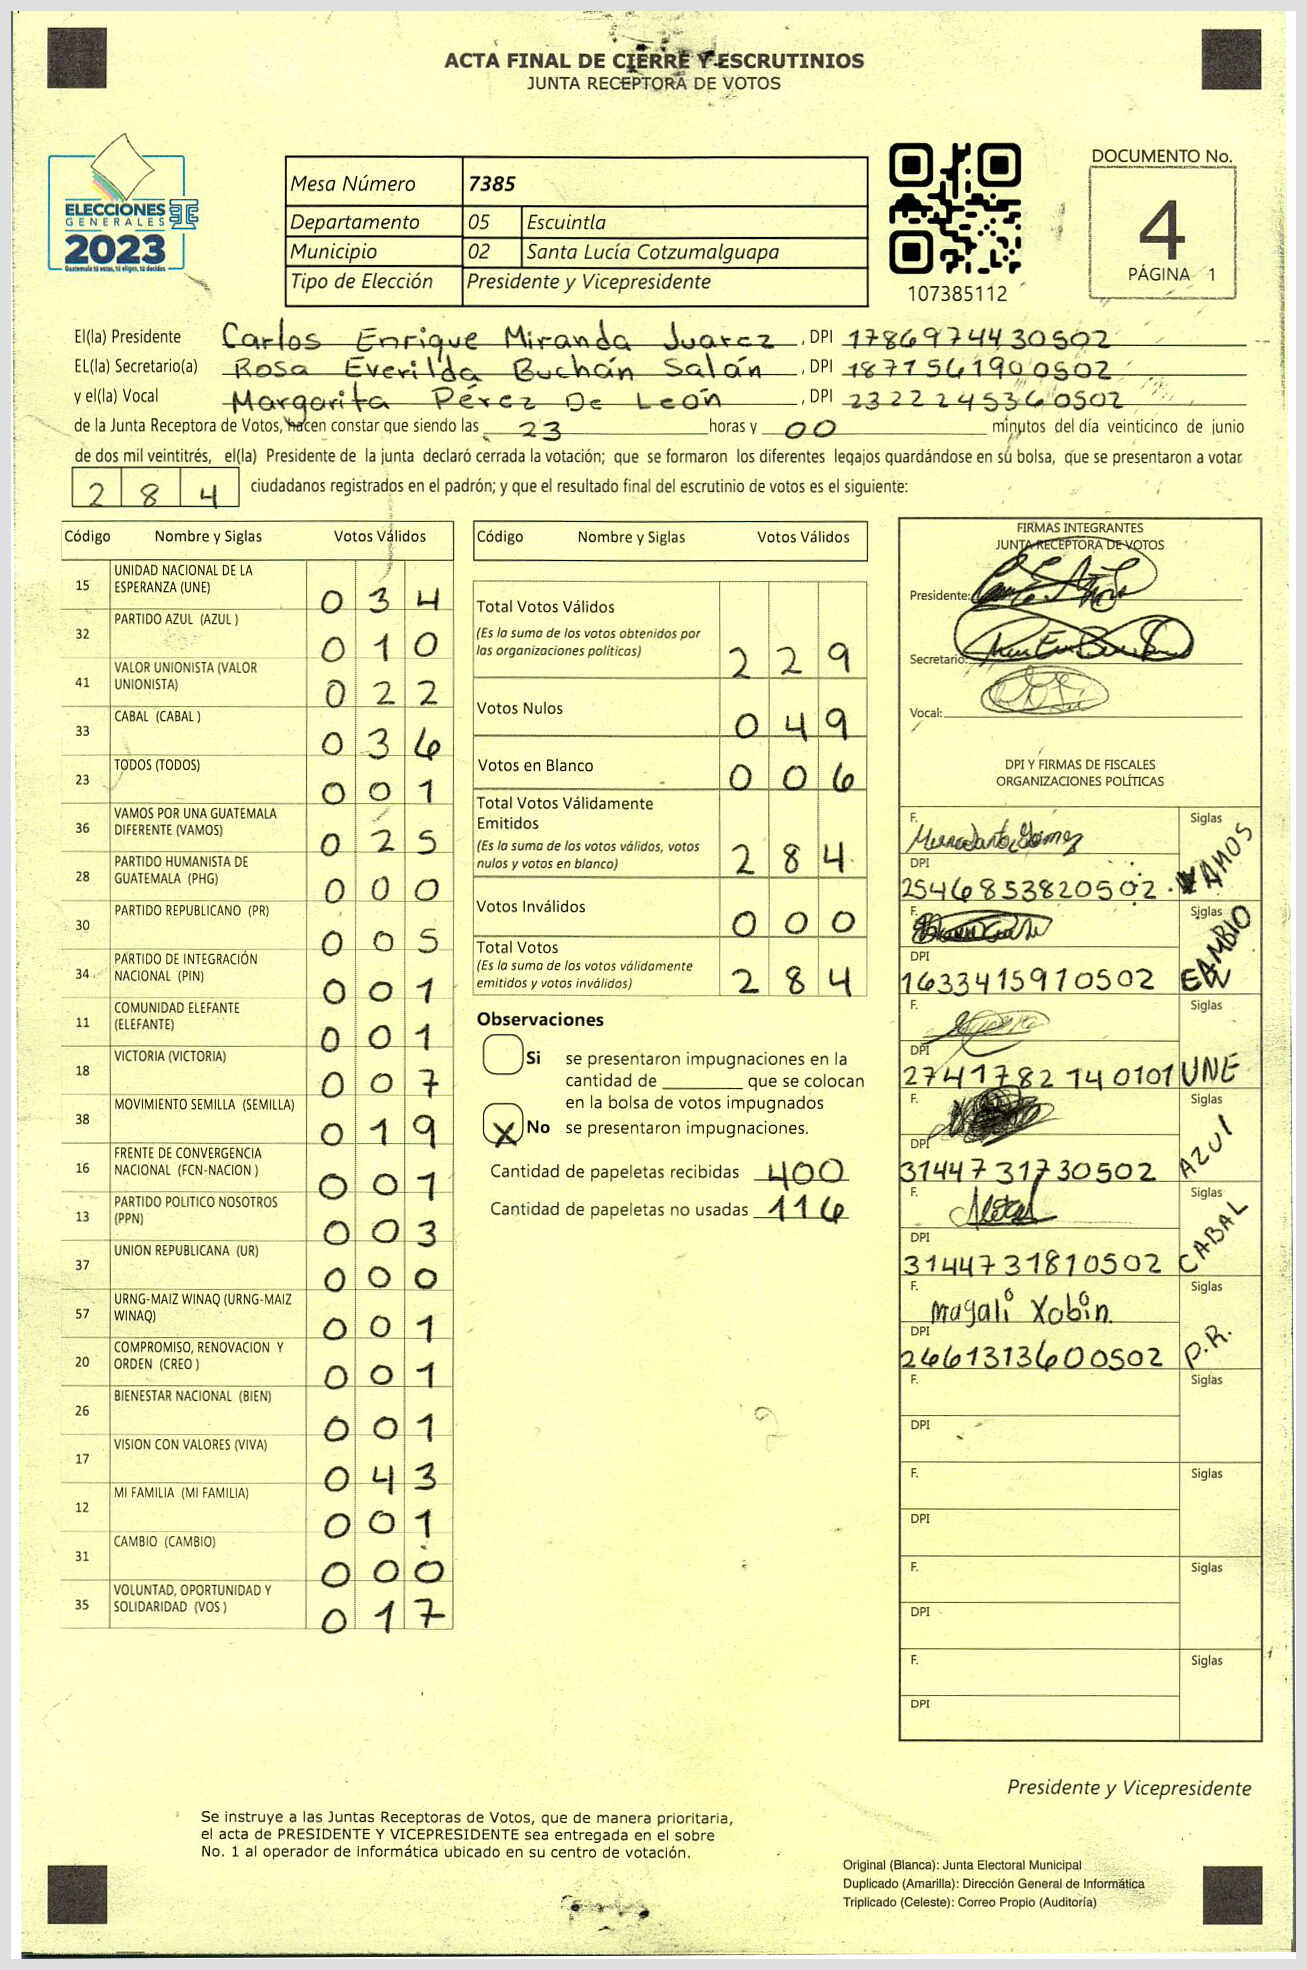 ACTA FINAL DE CIERRE Y ESCRUTINIOS
JUNTA RECEPTORA DE VOTOS
ELECCIONES
GENERALES
2023
Guatemala tú votas, tú eliges, tú decides
Mesa Número 7385
Departamento 05 Escuintla
Municipio 02 Santa Lucía Cotzumalguapa
Tipo de Elección Presidente y Vicepresidente
107385112
DOCUMENTO No.
4
PÁGINA 1
El(la) Presidente Carlos Enrique Miranda Juarez, DPI 1786974430502
EL(la) Secretario(a) Rosa Everilda Buchán Salán, DPI 1871561900502
y el(la) Vocal Margarita Pérez De León, DPI 2322245360502
de la Junta Receptora de Votos, hacen constar que siendo las 23 horas y 00 minutos del día veinticinco de junio
de dos mil veintitrés, el(la) Presidente de la junta declaró cerrada la votación; que se formaron los diferentes legajos quardándose en su bolsa, que se presentaron a votar
284 ciudadanos registrados en el padrón; y que el resultado final del escrutinio de votos es el siguiente:
Código Nombre y Siglas Votos Válidos
15 UNIDAD NACIONAL DE LA ESPERANZA (UNE) 034
32 PARTIDO AZUL (AZUL ) 010
41 VALOR UNIONISTA (VALOR UNIONISTA) 022
33 CABAL (CABAL ) 036
23 TODOS (TODOS) 001
36 VAMOS POR UNA GUATEMALA DIFERENTE (VAMOS) 025
28 PARTIDO HUMANISTA DE GUATEMALA (PHG) 000
30 PARTIDO REPUBLICANO (PR) 005
34 PARTIDO DE INTEGRACIÓN NACIONAL (PIN) 001
11 COMUNIDAD ELEFANTE (ELEFANTE) 001
18 VICTORIA (VICTORIA) 007
38 MOVIMIENTO SEMILLA (SEMILLA) 019
16 FRENTE DE CONVERGENCIA NACIONAL (FCN-NACION ) 001
13 PARTIDO POLITICO NOSOTROS (PPN) 003
37 UNION REPUBLICANA (UR) 000
57 URNG-MAIZ WINAQ (URNG-MAIZ WINAQ) 001
20 COMPROMISO, RENOVACION Y ORDEN (CREO ) 001
26 BIENESTAR NACIONAL (BIEN) 001
17 VISION CON VALORES (VIVA) 043
12 MI FAMILIA (MI FAMILIA) 001
31 CAMBIO (CAMBIO) 000
35 VOLUNTAD, OPORTUNIDAD Y SOLIDARIDAD (VOS ) 017
Código Nombre y Siglas Votos Válidos
Total Votos Válidos
(Es la suma de los votos obtenidos por
las organizaciones políticas) 229
Votos Nulos 049
Votos en Blanco 006
Total Votos Válidamente
Emitidos
(Es la suma de los votos válidos, votos
nulos y votos en blanco) 284
Votos Inválidos 000
Total Votos
(Es la suma de los votos válidamente
emitidos y votos inválidos) 284
Observaciones
Si se presentaron impugnaciones en la
cantidad de que se colocan
en la bolsa de votos impugnados
X No se presentaron impugnaciones.
Cantidad de papeletas recibidas 400
Cantidad de papeletas no usadas 116
FIRMAS INTEGRANTES
JUNTA RECEPTORA DE VOTOS
Presidente:
Secretario:
Vocal:
DPI Y FIRMAS DE FISCALES
ORGANIZACIONES POLÍTICAS
F. Siglas
DPI
2546853820502 VAMOS
F. Siglas
DPI
1633415910502 CAMBIO
F. Siglas
DPI
2741782140101 UNE
F. Siglas
DPI
3144731730502 AZUl
F. Siglas
DPI
3144731810502 CABAL
F. Magali Xobin Siglas
DPI
2661313600502 P.R.
F. Siglas
DPI
F. Siglas
DPI
F. Siglas
DPI
F. Siglas
DPI
Presidente y Vicepresidente
Se instruye a las Juntas Receptoras de Votos, que de manera prioritaria,
el acta de PRESIDENTE Y VICEPRESIDENTE sea entregada en el sobre
No. 1 al operador de informática ubicado en su centro de votación.
Original (Blanca): Junta Electoral Municipal
Duplicado (Amarilla): Dirección General de Informática
Triplicado (Celeste): Correo Propio (Auditoría)